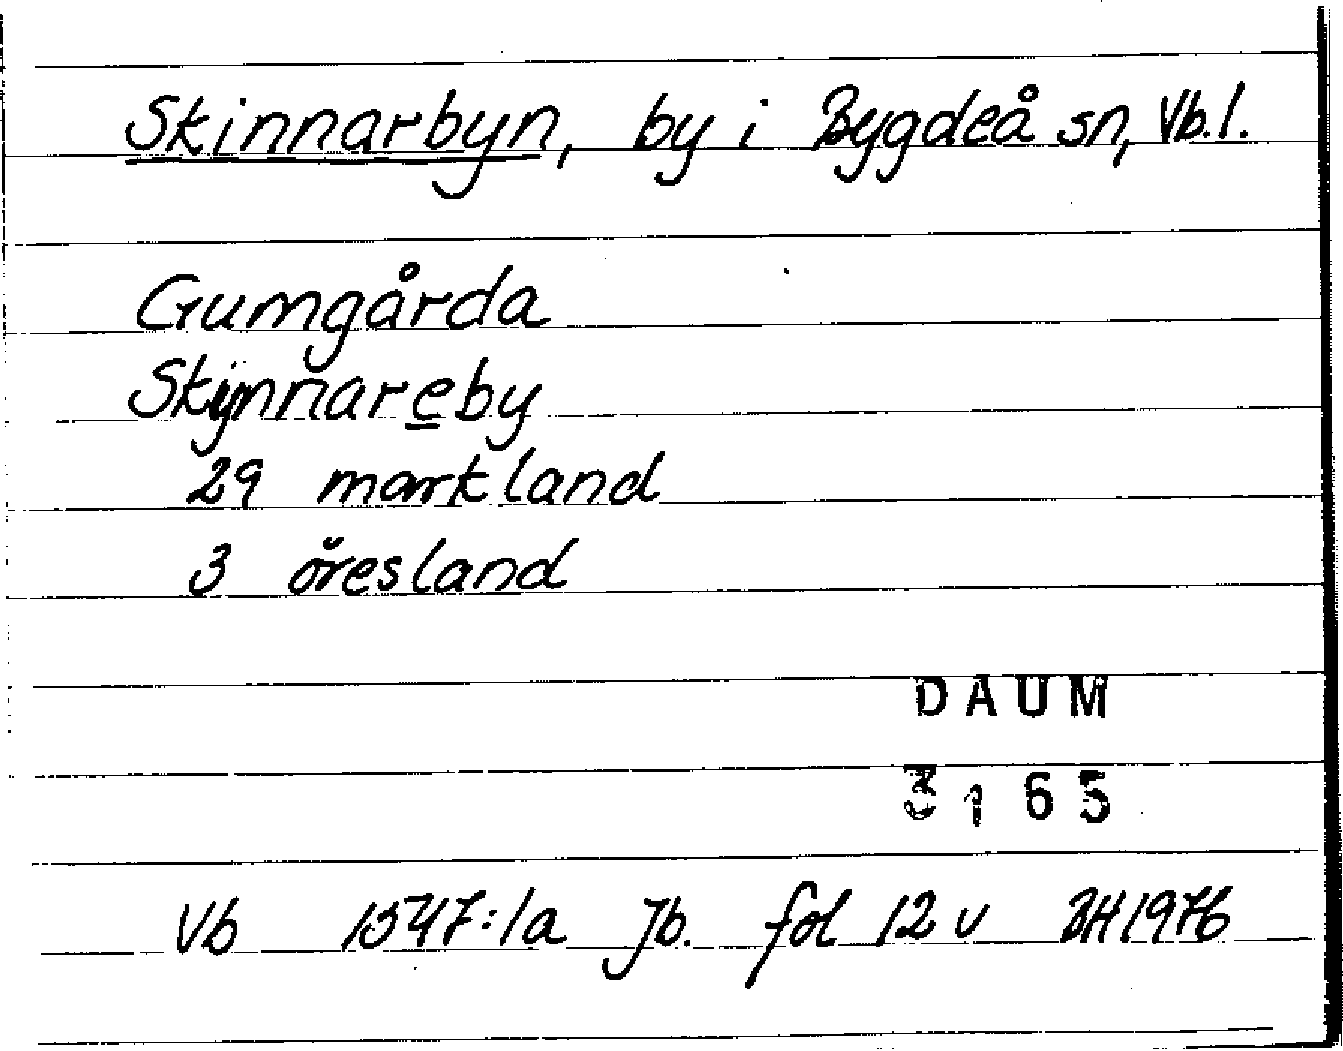 Skinnarbyn, by i Bygdeå sn, Vb.l.
Gumgårda
Skÿnnareby
29 markland
3 öresland
DAUM
3165
Vb 1547:1a Jb. fol 12 v BH 1976